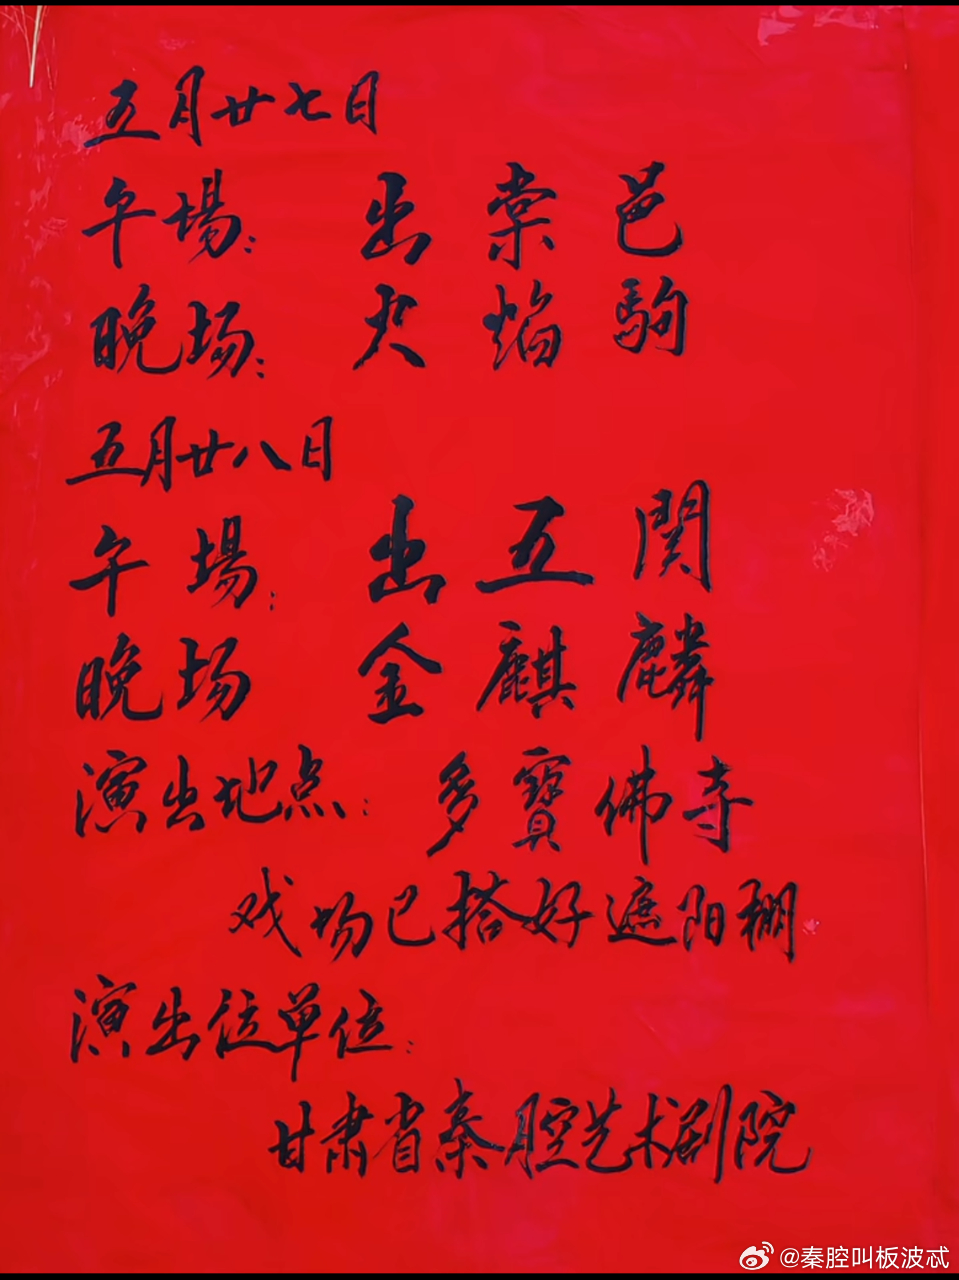 五月廿七日
午場：出棠邑
晚场：火焰駒
五月廿八日
午場：出五関
晚场 金麒麟
演出地点：多寳佛寺
戏场已搭好遮阳棚
演出位单位：
甘肃省秦腔艺术剧院
@秦腔叫板波忒